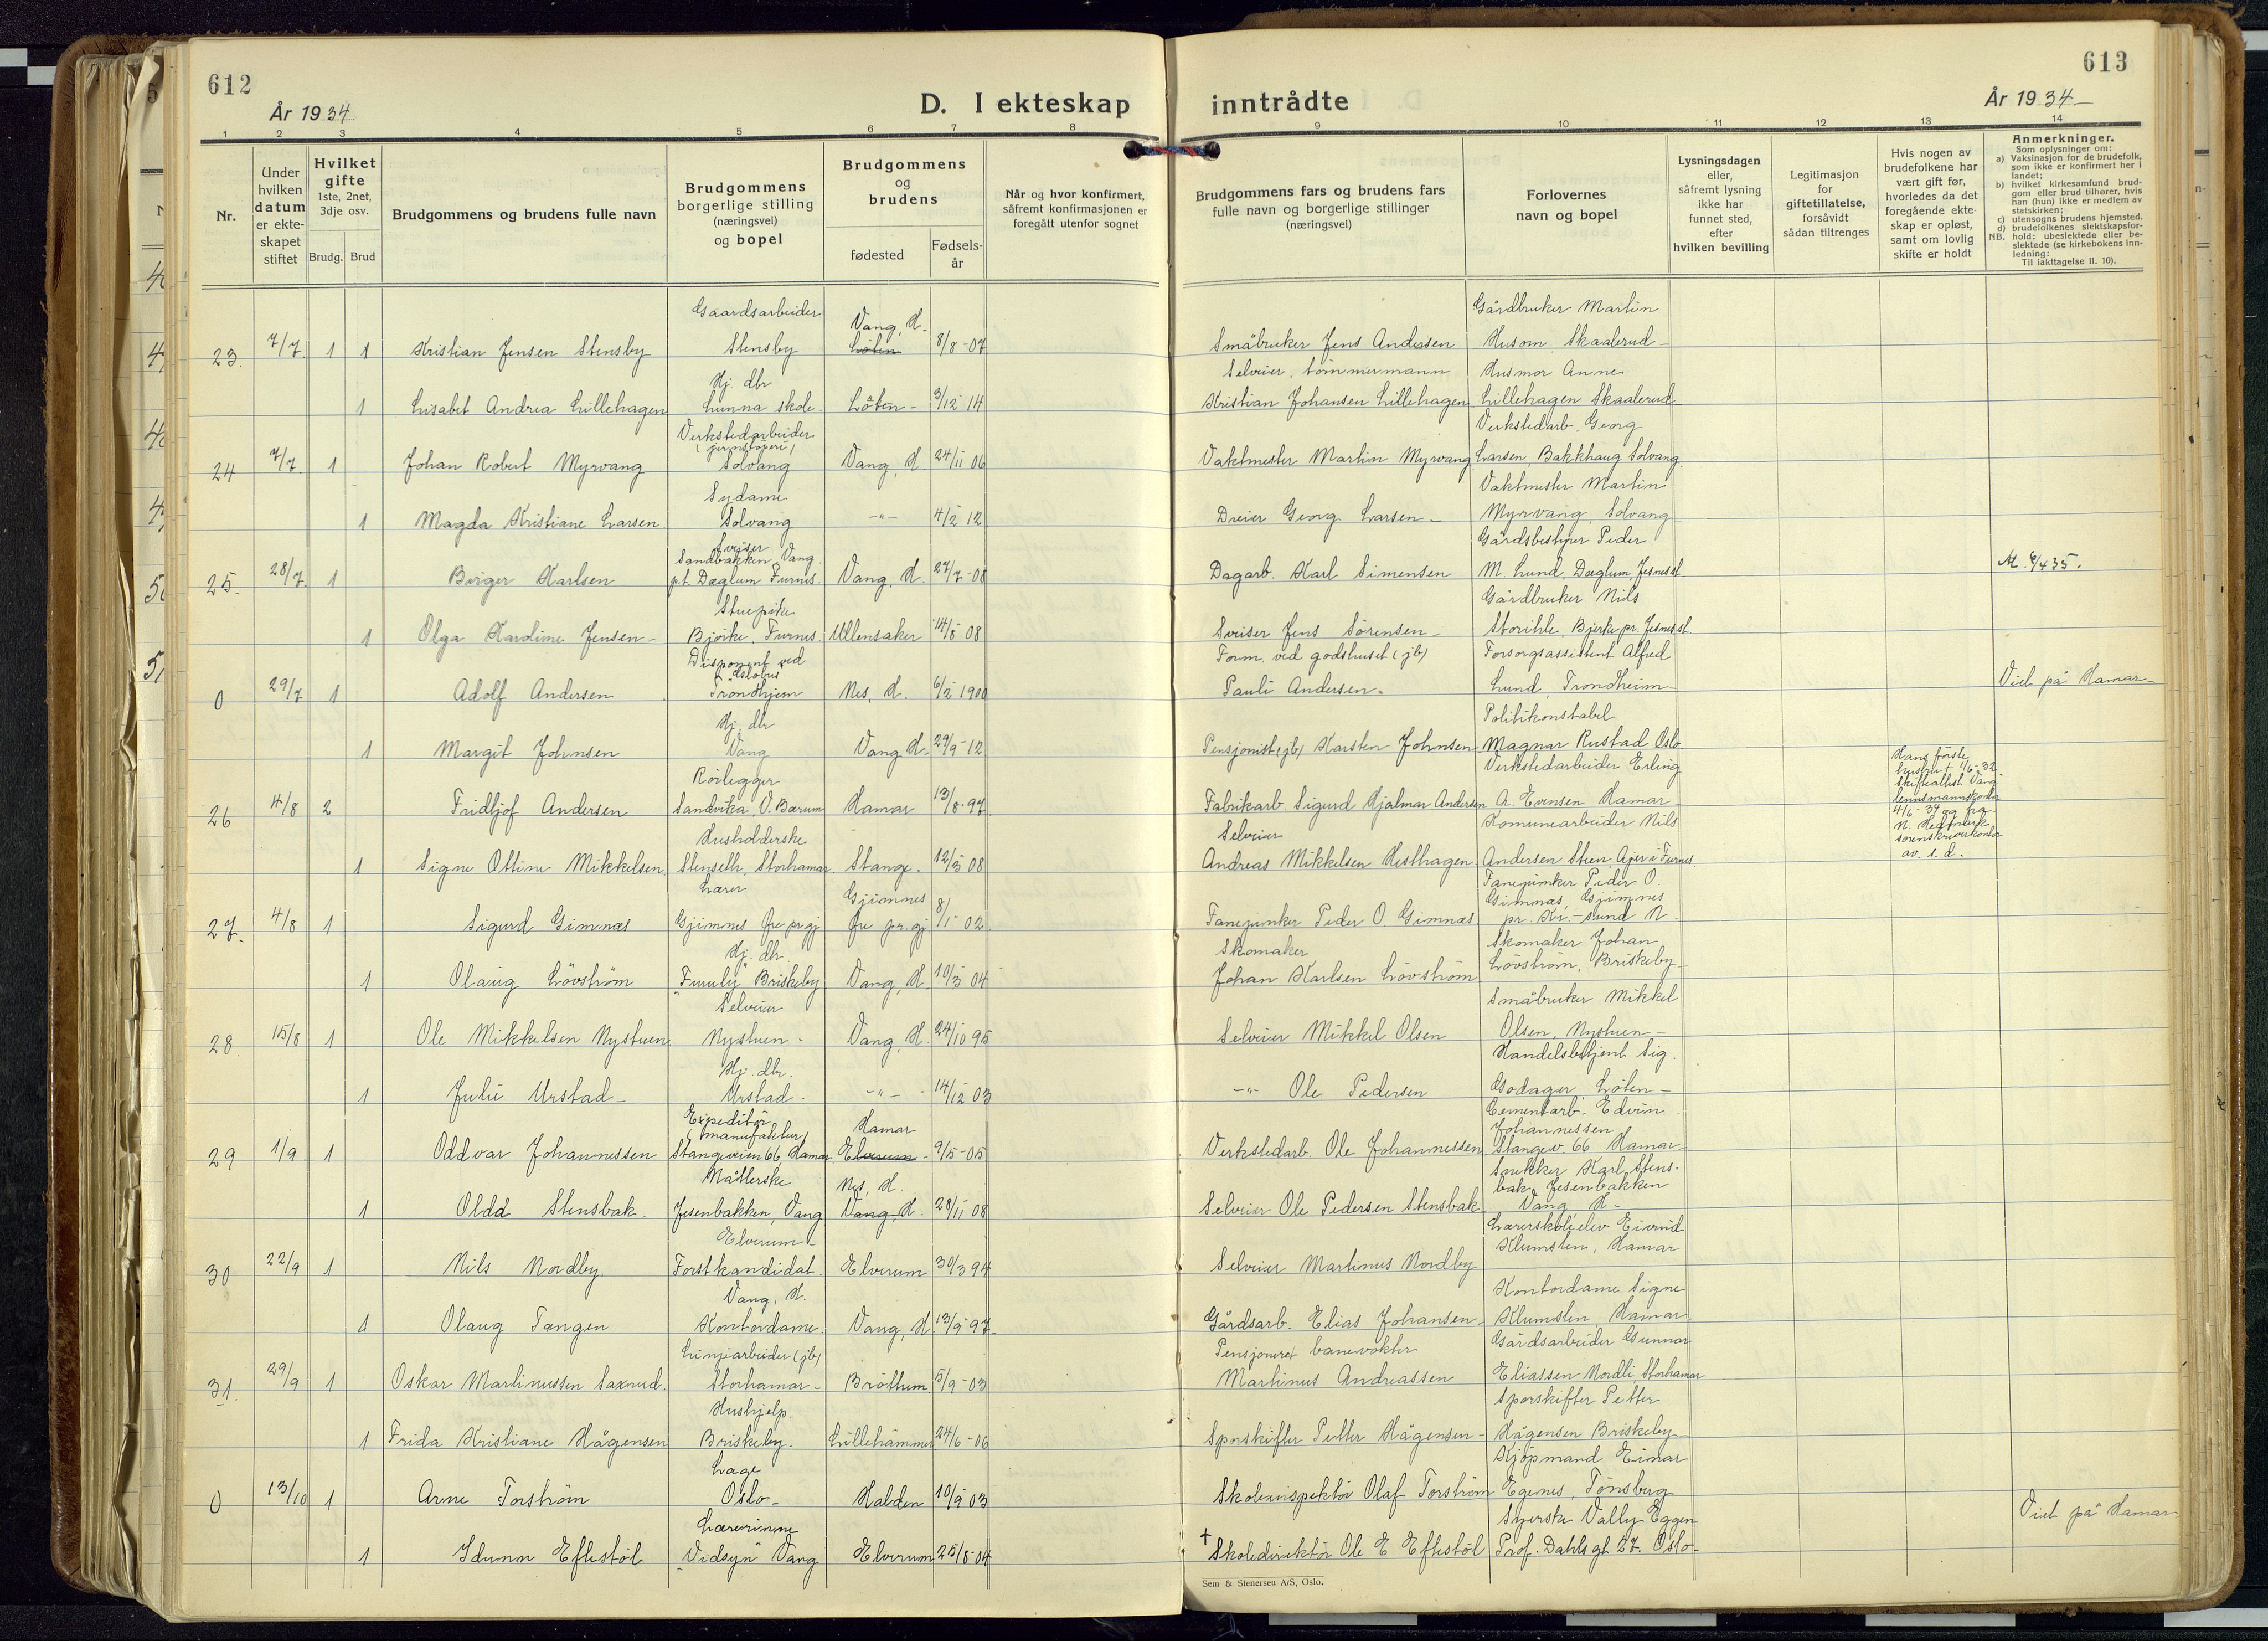 612
År 1934
D. I ekteskap
1 2 3 4 5 6 7 8
Nr.
Under hvilken datum er ekteskapet stiftet
Hvilket gifte 1ste, 2net, 3dje osv.
Brudg. Brud
Brudgommens og brudens fulle navn
Brudgommens borgerlige stilling (næringsvei) og bopel
Brudgommens og brudens
fødested Fødselsår
Når og hvor konfirmert, såfremt konfirmasjonen er foregått utenfor sognet
Gaardsarbeider Vang, H.
23. 7/7 1 1 Kristian Jensen Stensby Stensby Löten 8/8-07
Hj. dtr
1 Lisabet Andrea Lillehagen Lunna skole Löten 3/12 14
Verkstedarbeider (jernstöperi)
24 7/7 1 Johan Robert Myrvang Solvang Vang, H 24/11 06
Sydame
1 Magda Kristiane Larsen Solvang -"- 4/2 12
Sveiser Sandbakken Vang
25. 28/7 1 Birger Karlsen p.t. Dæglum Furnes. Vang, H. 27/7-08
Stuepike
1 Olga Karoline Jensen Bjørke, Furnes Ullensaker 14/5 08
Disponent ved Oslobus
0 29/7 1 Adolf Andersen Trondhjem Nes, H. 6/2 1900
Hj. dtr
1 Margit Johnsen Vang Vang H. 29/9-12
Rörlegger
26 4/8 2 Fridtjof Andersen Sandvika, V. Bærum Hamar 13/8-97
Husholderske
1 Signe Ottine Mikkelsen Stenseth, Storhamar Stange. 12/5 08
Lærer Gjimnes
27. 4/8 1 Sigurd Gimnæs Gjimnes Øre pr gj Øre pr. gj 8/1 02
Hj. dtr.
1 Olaug Lövström "Furuly" Briskeby Vang, H. 10/3 04
Selveier
28. 15/8 1 Ole Mikkelsen Nystuen Nystuen Vang, H. 24/10 95
Hj. dtr.
1 Julie Urstad Urstad -"- 14/12 03
Expeditör (manufaktur) Hamar
29 1/9 1 Oddvar Johannessen Stangeveien 66 Hamar Elverum 9/5-05
Nes, H.
1 Oldd Stensbak Jesenbakken, Vang Vang, H. 28/11 08
Elverum
30 22/9 1 Nils Nordby. Forstkandidat. Elverum 30/3 94
Vang, H.
1 Olaug Tangen Kontordame. Vang, H. 13/9-97
Linjearbeider (jb)
31. 29/9 1 Oskar Martinussen Saxrud Storhamar Bröttum 5/9-03
Hushjelp.
1 Frida Kristiane Hågensen Briskeby. Lillehammer 24/6-06
Læge
0 13/10 1 Arne Torström Oslo Halden 10/9 03
Lærerinne
1 Idunn Eftestöl "Vidsyn" Vang Elverum 25/8-04
613
År 1934
inntrådte
9 10 11 12 13 14
Brudgommens fars og brudens fars fulle navn og borgerlige stillinger (næringsvei)
Forlovernes navn og bopel
Lysningsdagen eller, såfremt lysning ikke har funnet sted, efter hvilken bevilling
Legitimasjon for giftetillatelse, forsåvidt sådan tiltrenges
Hvis nogen av brudefolkene har vært gift før, hvorledes da det foregående ekteskap er opløst, samt om lovlig skifte er holdt
Anmerkninger.
Som oplysninger om:
a) Vaksinasjon for de brudefolk, som ikke er konfirmert her i landet;
b) hvilket kirkesamfund brudgom eller brud tilhører, hvis han (hun) ikke er medlem av statskirken;
c) utensogns brudens hjemsted.
d) brudefolkenes slektskapsforhold: ubeslektede eller beslektede (se kirkebokens innledning:
NB. Til iakttagelse II. 10).
Gårdbruker Martin
Småbruker Jens Andersen Husom Skaalerud
Selveier, tömmermann Husmor Anne
Kristian Johansen Lillehagen Lillehagen Skaalerud
Verkstedarb. Georg
Vaktmester Martin Myrvang Larsen, Bakkhaug Solvang
Vaktmester Martin
Dreier Georg Larsen Myrvang Solvang
Gårdsbestyrer Peder
Dagarb. Karl Simensen M. Lund, Dæglum, Jesnes st.
Gårdbruker Nils
Sveiser Jens Sörensen Storihle, Bjerke pr. Jesnes st.
Form. ved godshuset (jb) Forsorgsassistent Alfred
Pauli Andersen. Lund, Trondheim Viet på Hamar
Politikonstabel
Pensjonist (jb) Karsten Johnsen Magnar Rustad Oslo
Verkstedarbeider Erling
Fabrikarb Sigurd Hjalmar Andersen A. Evensen Hamar
Hans förste hustru † 1/6-32 Skifteattest Vang lennsmannskontor 4/6 34 og fra N. Hedmark sorenskriverkontor av s. d.
Selveier Komunearbeider Nils
Andreas Mikkelsen Hesthagen Andersen Steen Ajer i Furnes
Fanejunker Peder O.
Gimnæs, Gjimnes
Fanejunker Peder O Gimnæs pr. Kr.-sund N.
Skomaker Skomaker Johan
Johan Karlsen Lövström Lövström, Briskeby
Småbruker Mikkel
Selveier Mikkel Olsen Olsen, Nystuen
Handelsbetjent Sig.
-"- Ole Pedersen Godager, Löten
Cementarb. Edvin
Johannessen
Verkstedarb. Ole Johannessen Stangev. 66 Hamar
Snekker Karl Stensbak, Jesenbakken
Selveier Ole Pedersen Stensbak Vang H
Lærerskoleelev Eivind
Klumsten, Hamar
Selveier Martinus Nordby
Kontordame Signe
Gårdsarb. Elias Johansen Klumsten, Hamar
Pensjonert banevokter Gårdsarbeider Gunnar
Martinus Andreassen Eliassen Nordli Storhamar
Sporskifter Petter
Sporskifter Petter Hågensen Hågensen Briskeby
Kjöpmand Einar
Skoleinspektör Olaf Torström Egenes, Tönsberg
Syerske Vally Eggen Viet på Hamar
† Skoledirektör Ole E Eftestöl Prof. Dahls gt. 27. Oslo
Sem & Stenersen A/S, Oslo.